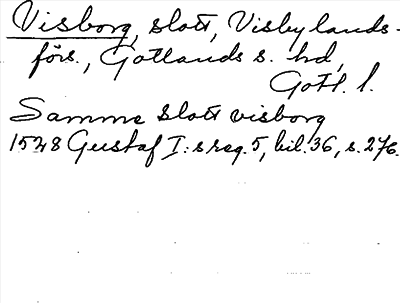 Visborg, slott, Visby lands-
förs., Gotlands s. hd,
Gotl. l.
Samme slott visborg
1528 Gustaf I:s reg. 5, bil. 36, s. 276.